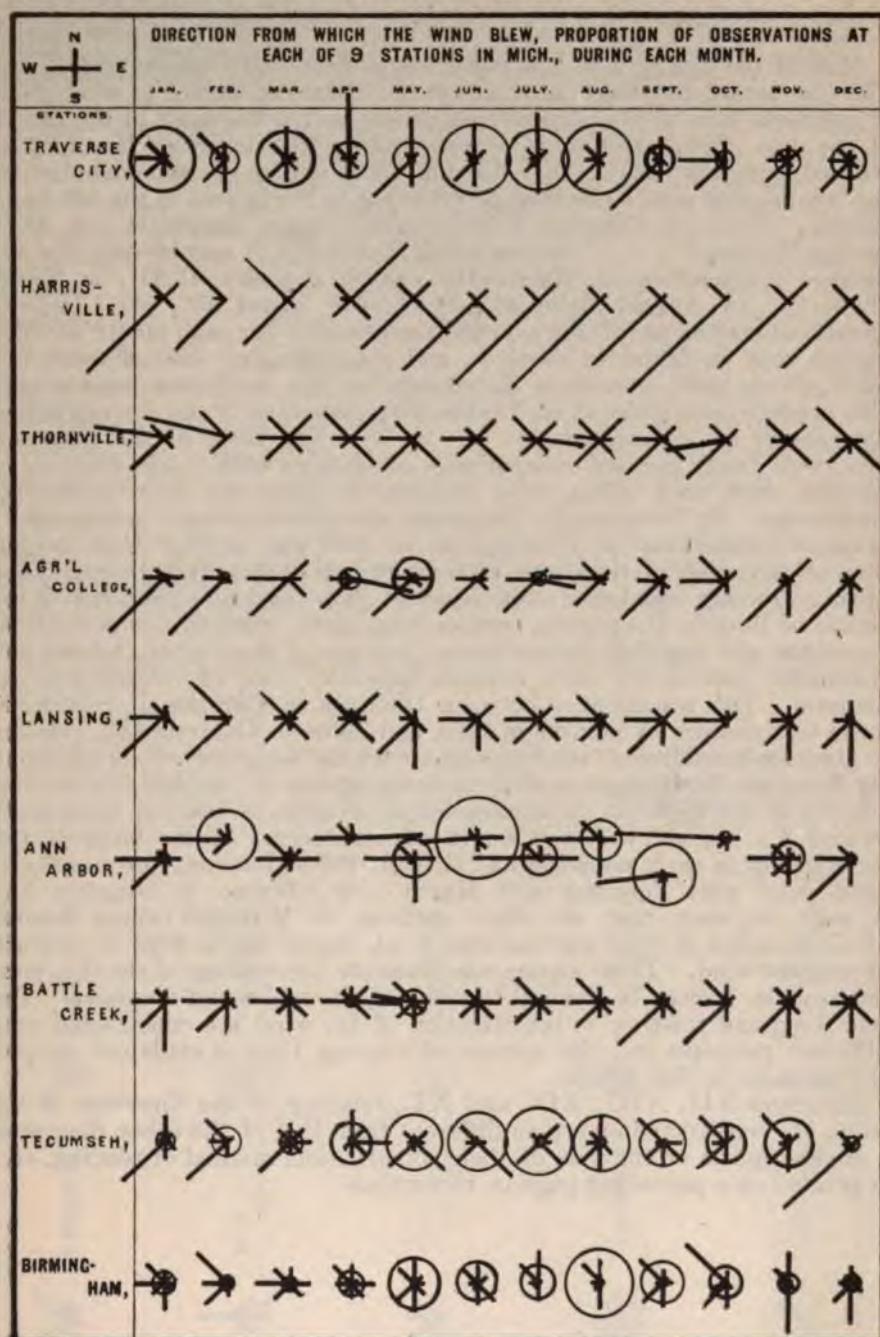 N
W E
S
DIRECTION FROM WHICH THE WIND BLEW, PROPORTION OF OBSERVATIONS AT
EACH OF 9 STATIONS IN MICH., DURING EACH MONTH.
JAN. FEB. MAR. APR. MAY. JUN. JULY. AUG. SEPT. OCT. NOV. DEC.
STATIONS.
TRAVERSE
CITY,
HARRIS-
VILLE,
THORNVILLE,
AGR'L
COLLEGE,
LANSING,
ANN
ARBOR,
BATTLE
CREEK,
TECUMSEH,
BIRMING-
HAM,